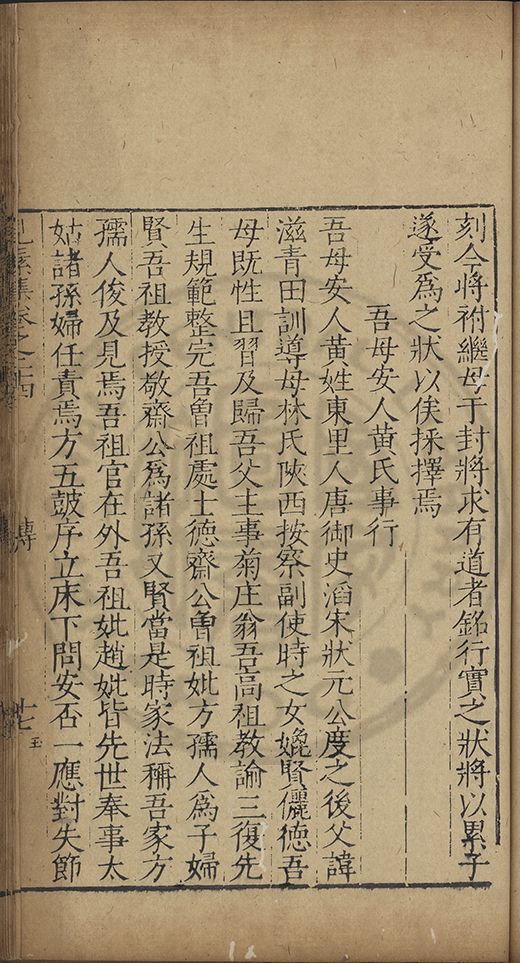 刻令將祔繼母于封將求有道者銘行實之狀將以累子
遂受爲之狀以俟採擇焉
吾母安人黃氏事行
吾母安人黃姓東里人唐御史滔宋狀元公度之後父諱
滋青田訓導母林氏陝西按察副使時之女媲賢儷德吾
母既性且習及歸吾父主事菊庄翁吾高祖教諭三復先
生規範整完吾曾祖處士德齋公曾祖妣方孺人爲子婦
賢吾祖教授敬齋公爲諸孫又賢當是時家法稱吾家方
孺人俊及見焉吾祖官在外吾祖妣趙妣皆先世奉事太
姑諸孫婦任責焉方五鼓序立床下問安否一應對失節
見素集卷之二十四
傳
十七